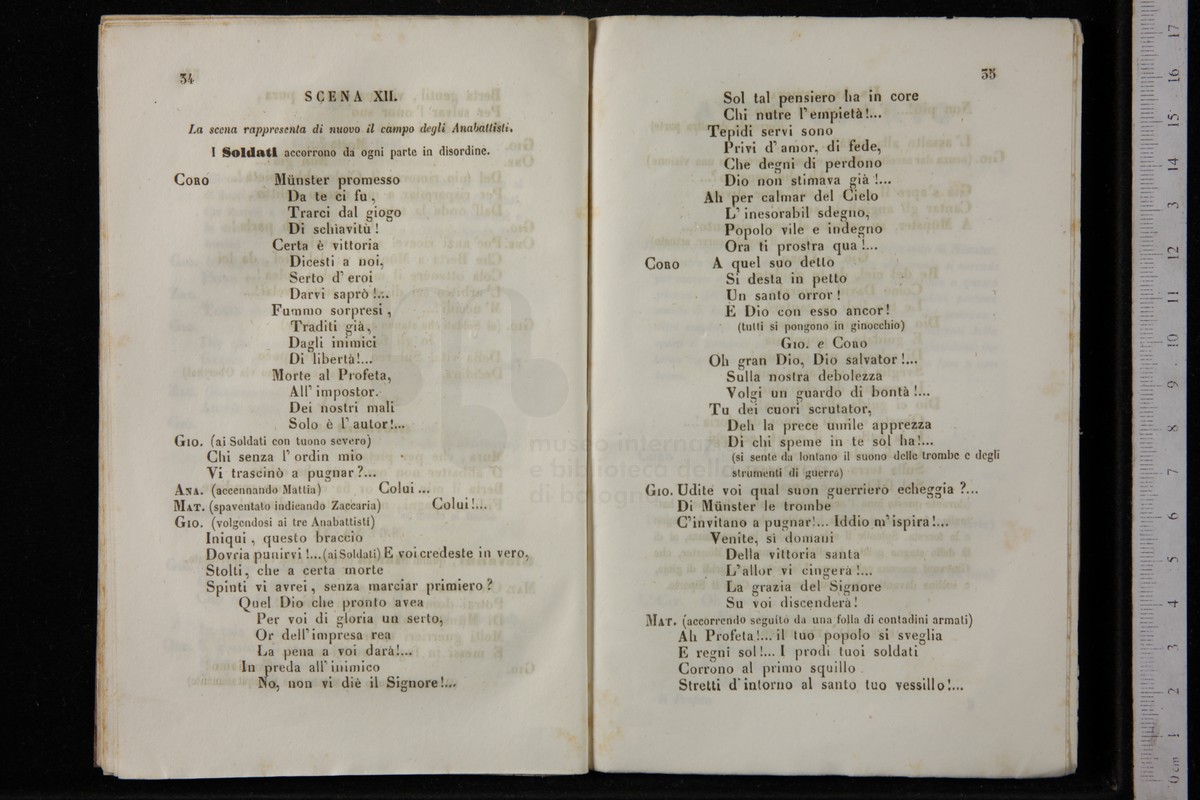 34
SCENA XII.
La scena rappresenta di nuovo il campo degli Anabattisti.
I Soldati accorrono da ogni parte in disordine.
CORO Münster promesso
Da te ci fu,
Trarci dal giogo
Di schiavitù!
Certa è vittoria
Dicesti a noi,
Serto d'eroi
Darvi saprò!...
Fummo sorpresi,
Traditi già,
Dagli inimici
Di libertà!...
Morte al Profeta,
All'impostor.
Dei nostri mali
Solo è l'autor!...
GIO. (ai Soldati con tuono severo)
Chi senza l'ordin mio
Vi trascinò a pugnar?...
ANA. (accennando Mattia) Colui...
MAT. (spaventato indicando Zaccaria) Colui!...
GIO. (volgendosi ai tre Anabattisti)
Iniqui, questo braccio
Dovria punirvi!...(ai Soldati) E voi credeste in vero,
Stolti, che a certa morte
Spinti vi avrei, senza marciar primiero?
Quel Dio che pronto avea
Per voi di gloria un serto,
Or dell'impresa rea
La pena a voi darà!...
In preda all'inimico
No, non vi diè il Signore!...
35
Sol tal pensiero ha in core
Chi nutre l'empietà!...
Tepidi servi sono
Privi d'amor, di fede,
Che degni di perdono
Dio non stimava già!...
Ah per calmar del Cielo
L'inesorabil sdegno,
Popolo vile e indegno
Ora ti prostra qua!...
CORO A quel suo detto
Si desta in petto
Un santo orror!
E Dio con esso ancor!
(tutti si pongono in ginocchio)
GIO. e CORO
Oh gran Dio, Dio salvator!...
Sulla nostra debolezza
Volgi un guardo di bontà!...
Tu dei cuori scrutator,
Deh la prece umile apprezza
Di chi speme in te sol ha!...
(si sente da lontano il suono delle trombe e degli
strumenti di guerra)
GIO. Udite voi qual suon guerriero echeggia?...
Di Münster le trombe
C'invitano a pugnar!... Iddio m'ispira!...
Venite, sì domani
Della vittoria santa
L'allor vi cingerà!...
La grazia del Signore
Su voi discenderà!
MAT. (accorrendo seguito da una folla di contadini armati)
Ah Profeta!... il tuo popolo si sveglia
E regni sol!... I prodi tuoi soldati
Corrono al primo squillo
Stretti d'intorno al santo tuo vessillo!...
museo internaz
e biblioteca della
di bologn
0 cm 1 2 3 4 5 6 7 8 9 10 11 12 13 14 15 16 17